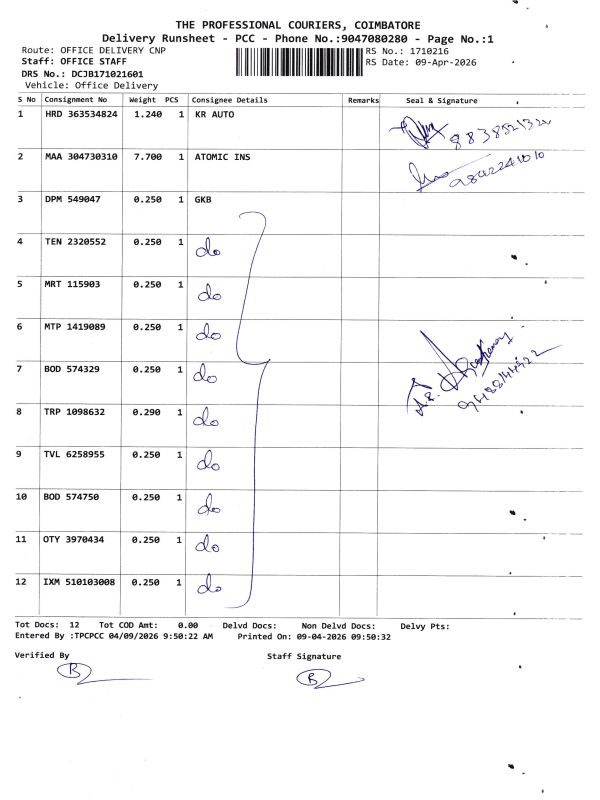 THE PROFESSIONAL COURIERS, COIMBATORE
Delivery Runsheet - PCC - Phone No.:9047080280 - Page No.:1
Route: OFFICE DELIVERY CNP RS No.: 1710216
Staff: OFFICE STAFF RS Date: 09-Apr-2026
DRS No.: DCJB171021601
Vehicle: Office Delivery
S No Consignment No Weight PCS Consignee Details Remarks Seal & Signature
1 HRD 363534824 1.240 1 KR AUTO
2 MAA 304730310 7.700 1 ATOMIC INS 9842241010
3 DPM 549047 0.250 1 GKB
4 TEN 2320552 0.250 1 do
5 MRT 115903 0.250 1 do
6 MTP 1419089 0.250 1 do
7 BOD 574329 0.250 1 do
8 TRP 1098632 0.290 1 do
9 TVL 6258955 0.250 1 do
10 BOD 574750 0.250 1 do
11 OTY 3970434 0.250 1 do
12 IXM 510103008 0.250 1 do
Tot Docs: 12 Tot COD Amt: 0.00 Delvd Docs: Non Delvd Docs: Delvy Pts:
Entered By :TPCPCC 04/09/2026 9:50:22 AM Printed On: 09-04-2026 09:50:32
Verified By Staff Signature
B B